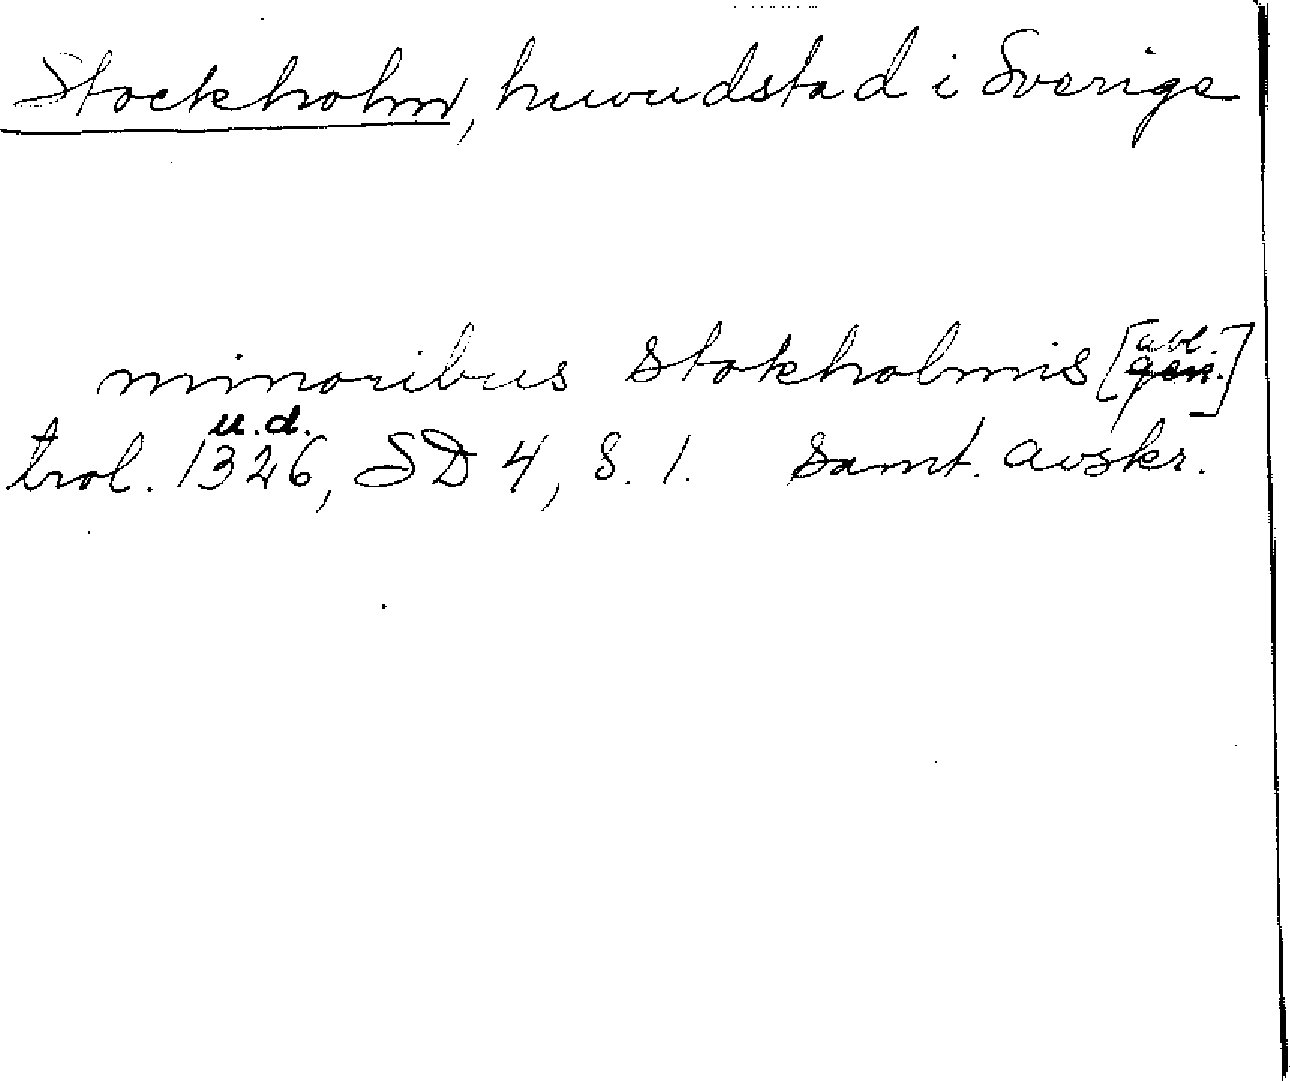 Stockholm, huvudstad i Sverige
minoribus stokholmis [abl. gen.]
u.d.
trol. 1326, SD 4, s. 1. samt. avskr.